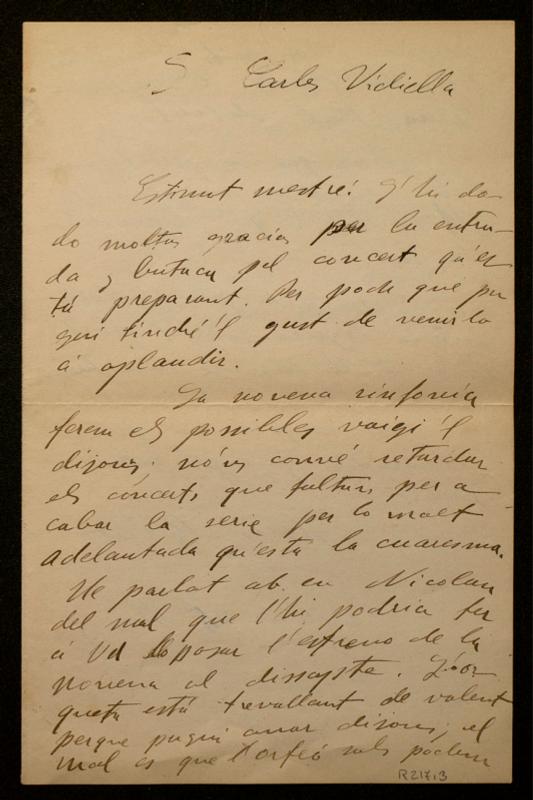 S Carles Vidiella
Estimat mestre: L'hi do-
do moltas gracias per la entra-
da y butaca pel concert qu'es
tá preparant. Per poch que pu
gui tindré'l gust de venirlo
á aplaudir.
La novena sinfonía
farem els possibles vaigi'l
dijous; no'ns convé retardar
els concerts que faltan per a
cabar la serie per lo molt
adelantada qu'está la cuaresma.
He parlat ab en Nicolau
del mal que l'hi podria fer
á Vd posar l'estreno de la
novena al dissapte. L'or
questa está trevallant de valent
perque pugui anar dijous; el
mal es que l'orfeó sols podem
R217,3